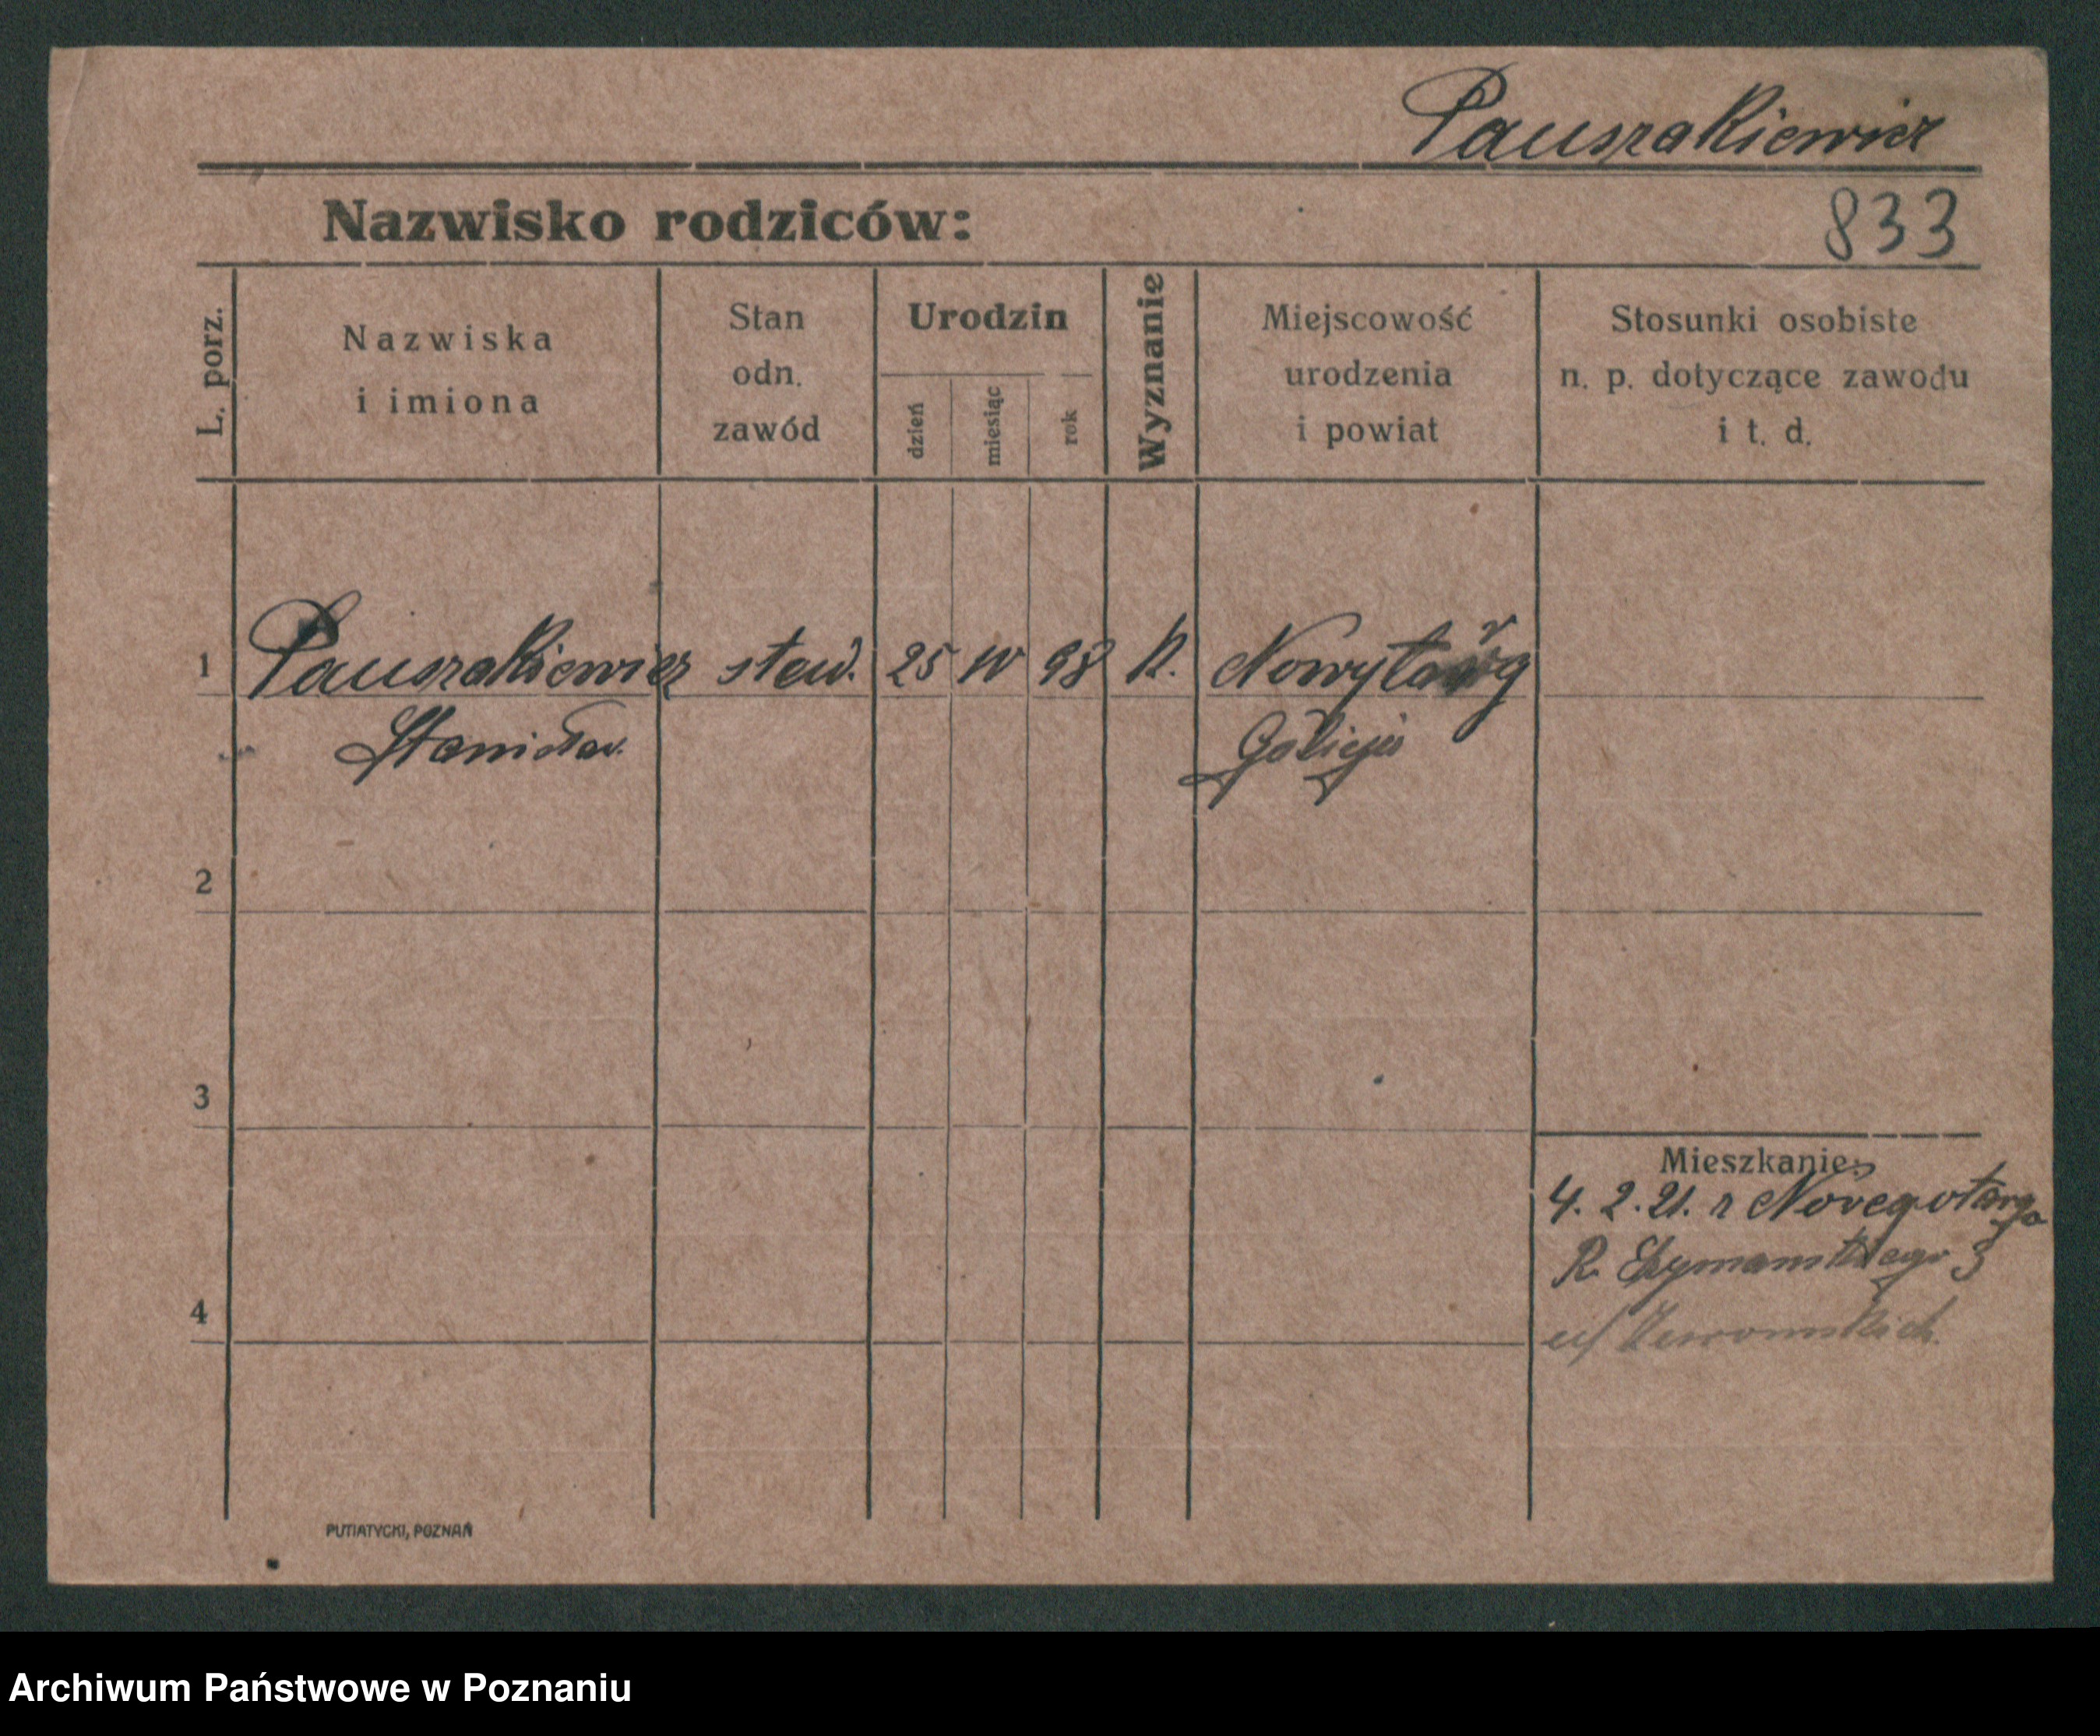 Pauszakiewicz
Nazwisko rodziców:
833
L. porz.
Nazwiska
i imiona
Stan
odn.
zawód
Urodzin
dzień
miesiąc
rok
Wyznanie
Miejscowość
urodzenia
i powiat
Stosunki osobiste
n. p. dotyczące zawodu
i t. d.
1
Pauszakiewicz
25
98
K.
Nowytarg
Stanisław.
Galicja
2
3
4
Mieszkanie:
4. 2. 21. z Nowegotargo
R. Szymanskiego 3
PUTIATYCKI, POZNAŃ
Archiwum Państwowe w Poznaniu